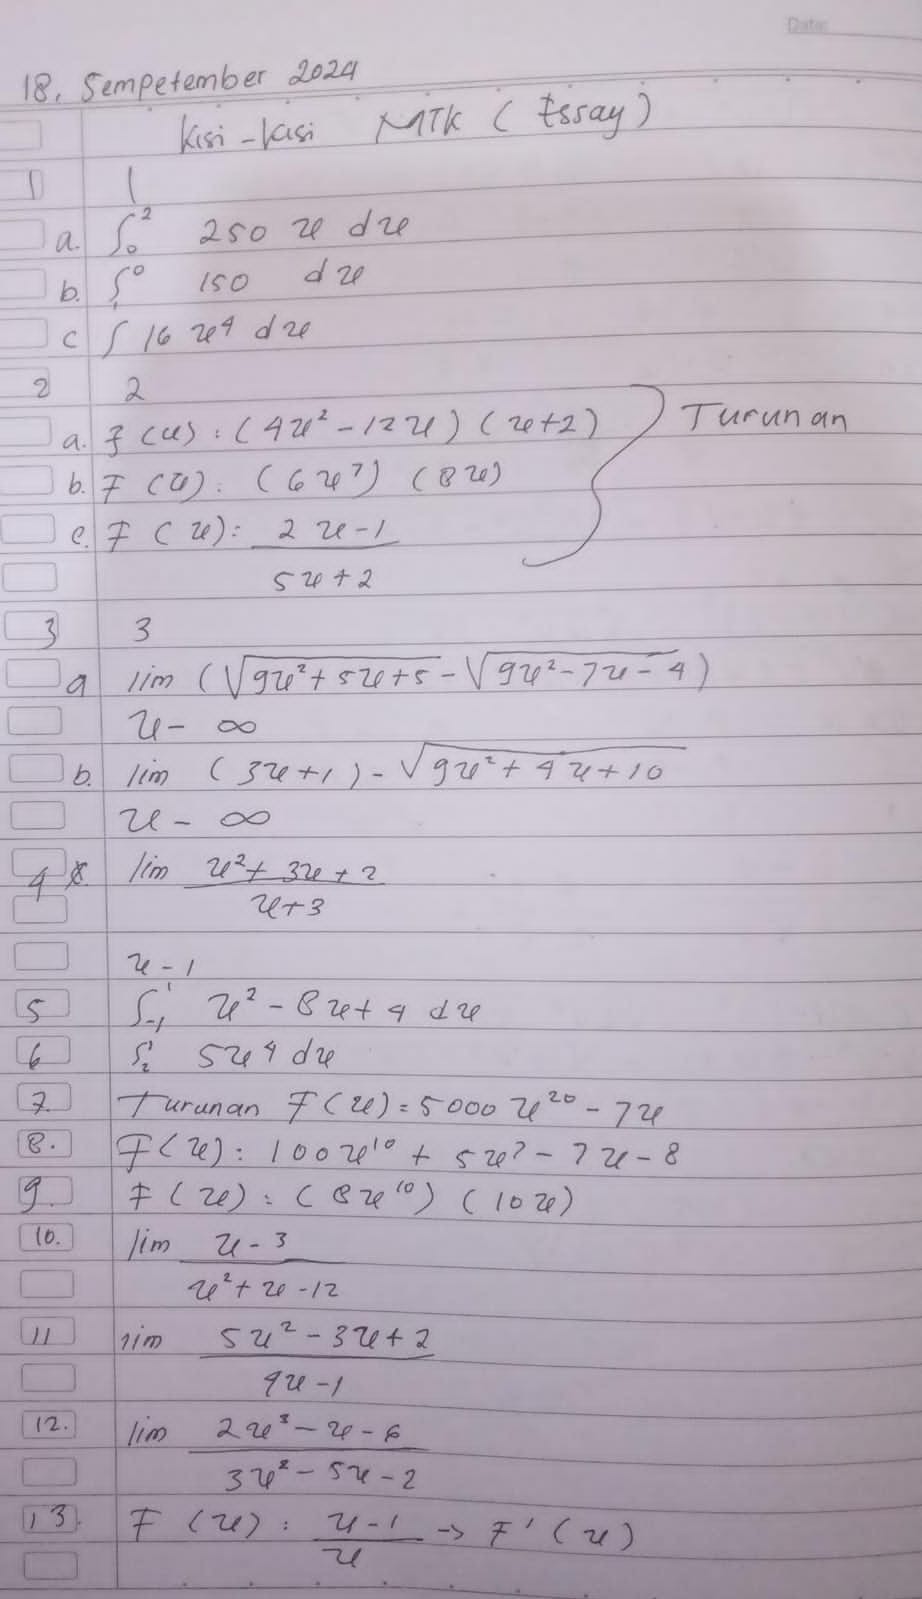 Date:
18. Sempetember 2024
Kisi-kisi MTK (Essay)
1 1
a. ∫₀² 250 x dx
b. ∫₁⁰ 150 dx
c ∫ 16 x⁴ dx
2 2
a. f(x) : (4x² - 12x) (x+2) Turunan
b. F(x) : (6x⁷) (8x)
c. F(x) : 2x-1
5x+2
3 3
a lim (√9x²+5x+5 - √9x²-7x-4)
x - ∞
b. lim (3x+1) - √9x²+4x+10
x - ∞
4 lim x²+3x+2
x+3
x - 1
5 ∫₋₁¹ x² - 8x+4 dx
6 ∫₂¹ 5x4 dx
7. Turunan F(x) = 5000x²⁰ - 7x
8. F(x) : 100x¹⁰ + 5x⁷ - 7x - 8
9. F(x) : (8x¹⁰) (10x)
10. lim x-3
x²+x-12
11 lim 5x² - 3x+2
4x-1
12. lim 2x² - x - 6
3x² - 5x - 2
13. F(x) : x-1 → F'(x)
x